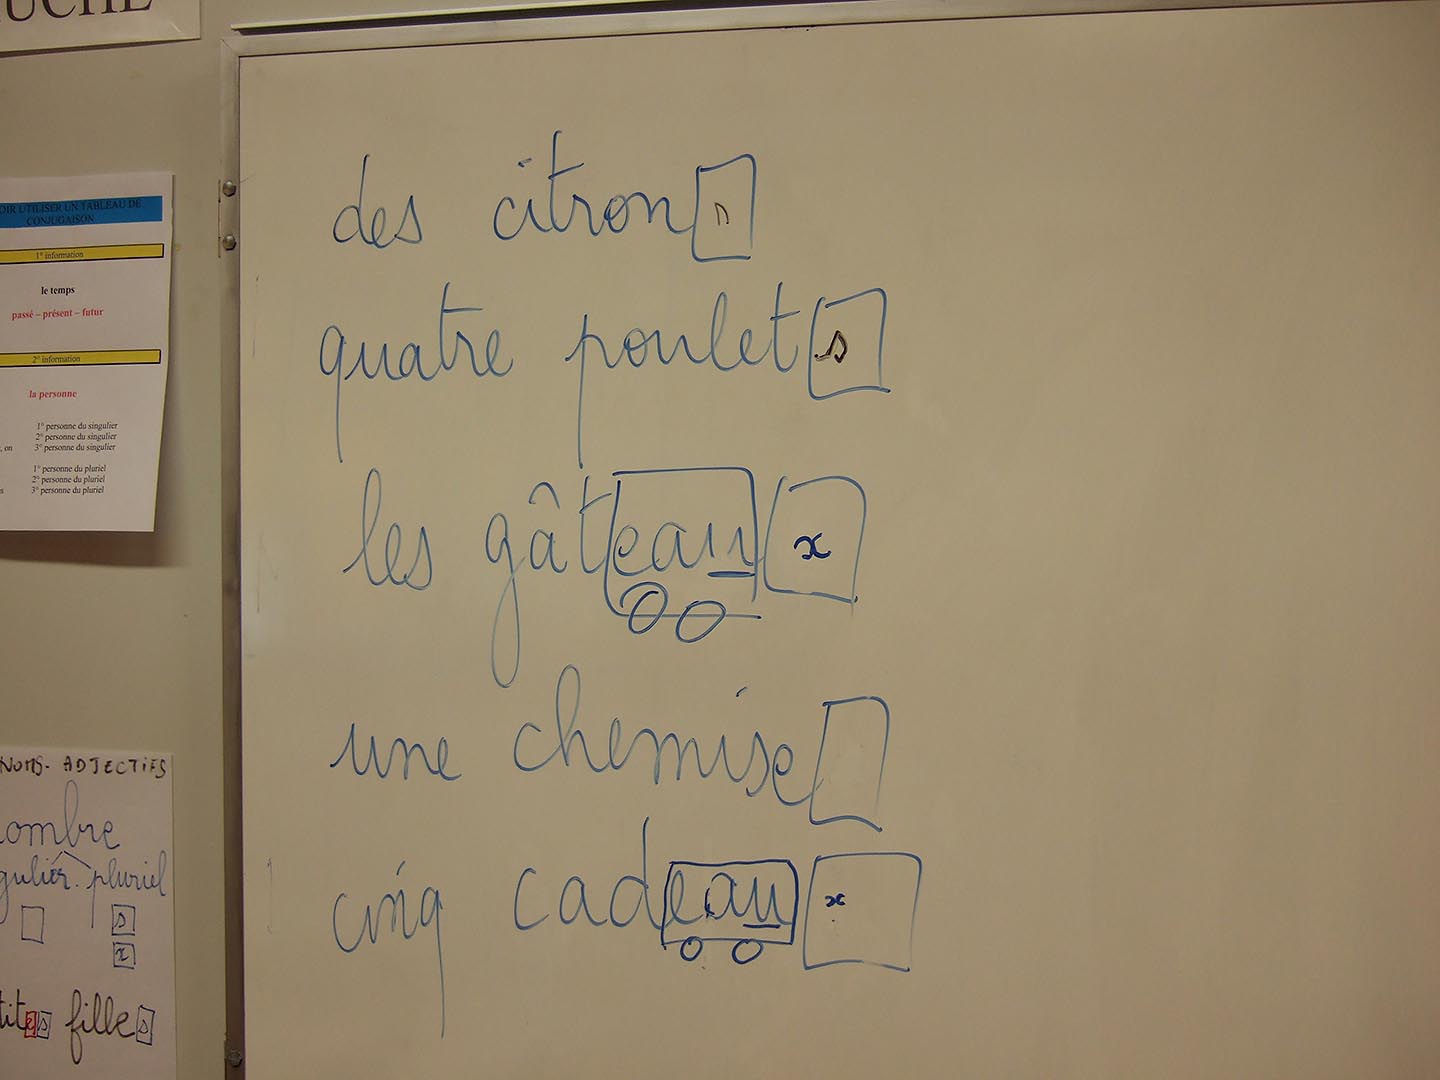 UCHE
OIR UTILISER UN TABLEAU DE
CONJUGAISON
1° information
le temps
passé – présent – futur
2° information
la personne
1° personne du singulier
2° personne du singulier
, on 3° personne du singulier
1° personne du pluriel
2° personne du pluriel
s 3° personne du pluriel
NOMS- ADJECTIFS
ombre
gulier. pluriel
s
x
tites filles
des citrons
quatre poulets
les gâteaux
une chemise
cinq cadeaux